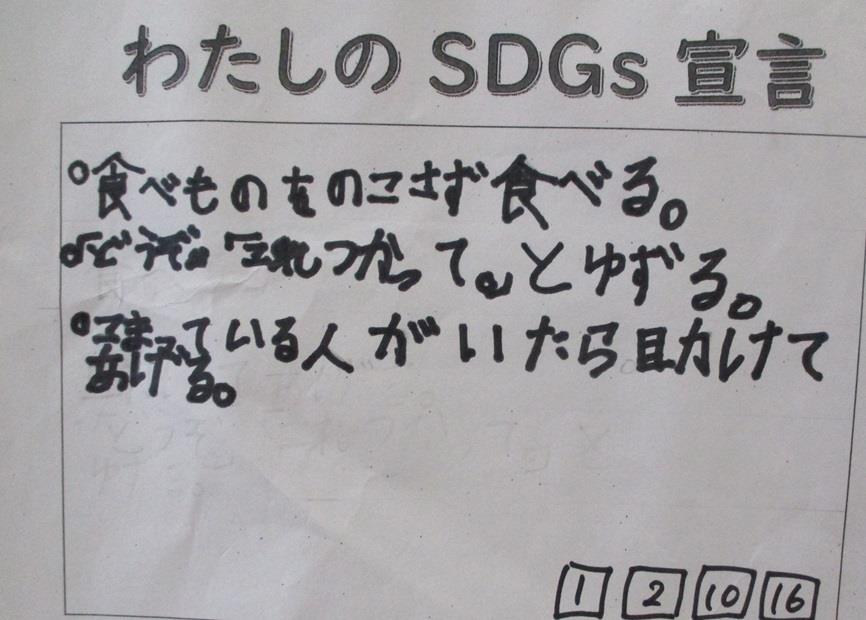 わたしのSDGs宣言
○食べものをのこさず食べる。
「どうぞ。」「これつかって。」とゆずる。
○こまっている人がいたら助けて
あげる。
1 2 10 16